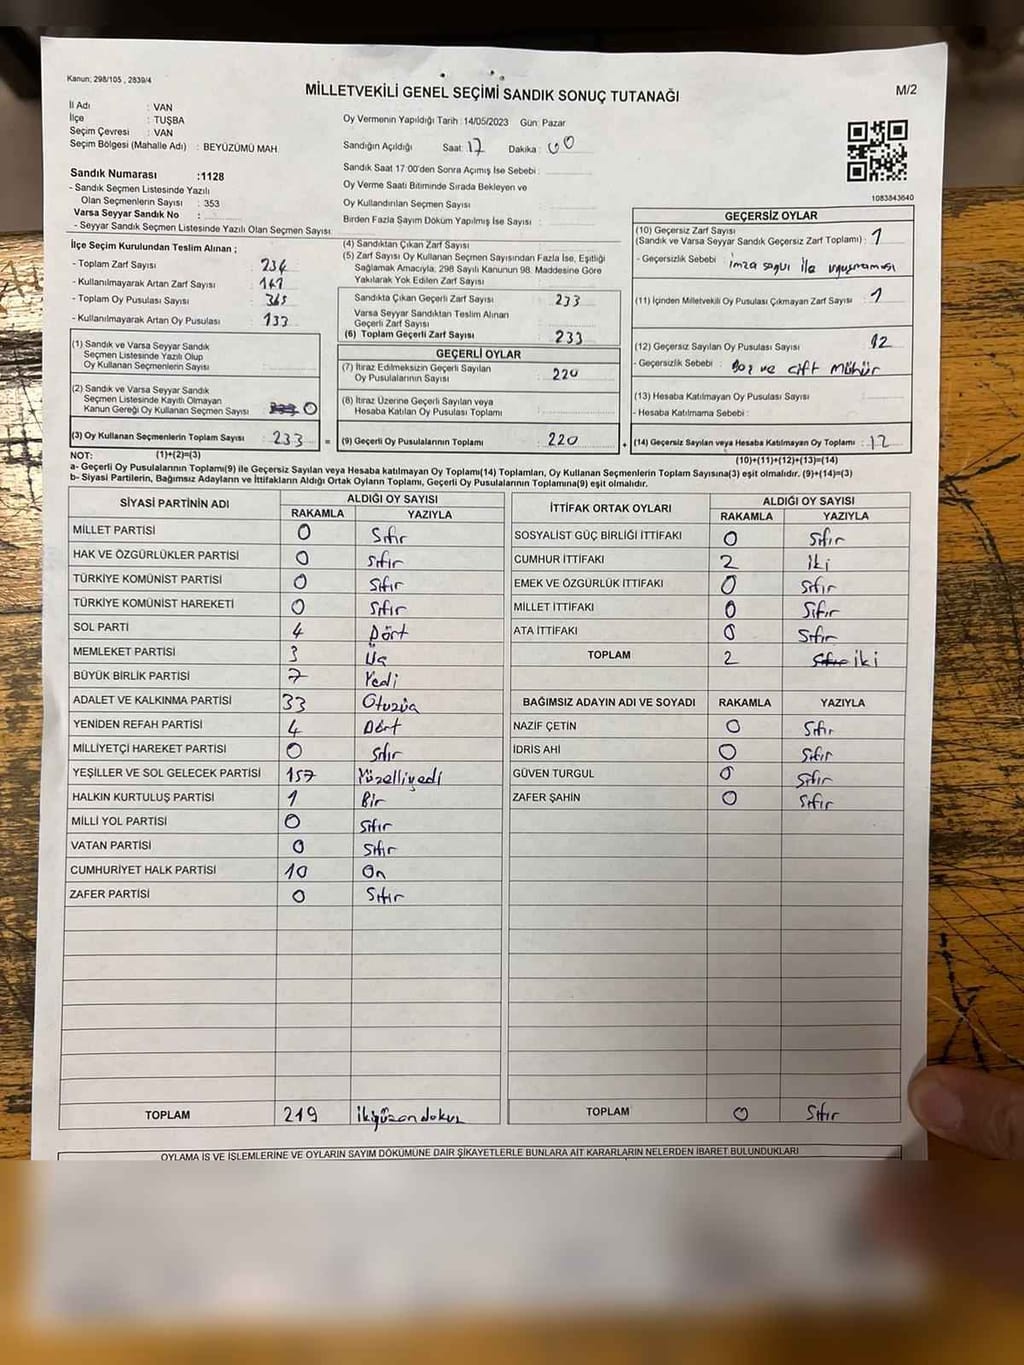 Kanun; 298/105 , 2839/4
MİLLETVEKİLİ GENEL SEÇİMİ SANDIK SONUÇ TUTANAĞI
M/2
İl Adı : VAN
İlçe : TUŞBA
Seçim Çevresi : VAN
Seçim Bölgesi (Mahalle Adı) : BEYÜZÜMÜ MAH.
Sandık Numarası :1128
- Sandık Seçmen Listesinde Yazılı
Olan Seçmenlerin Sayısı : 353
Varsa Seyyar Sandık No :
- Seyyar Sandık Seçmen Listesinde Yazılı Olan Seçmen Sayısı
Oy Vermenin Yapıldığı Tarih :14/05/2023 Gün: Pazar
Sandığın Açıldığı Saat: 17 Dakika : 00
Sandık Saat 17:00'den Sonra Açımış İse Sebebi :
Oy Verme Saati Bitiminde Sırada Bekleyen ve
Oy Kullandırılan Seçmen Sayısı :
Birden Fazla Sayım Döküm Yapılmış İse Sayısı :
1083843640
İlçe Seçim Kurulundan Teslim Alınan ;
- Toplam Zarf Sayısı
- Kullanılmayarak Artan Zarf Sayısı :
- Toplam Oy Pusulası Sayısı : 365
- Kullanılmayarak Artan Oy Pusulası : 133
(1) Sandık ve Varsa Seyyar Sandık
Seçmen Listesinde Yazılı Olup
Oy Kullanan Seçmenlerin Sayısı :
(2) Sandık ve Varsa Seyyar Sandık
Seçmen Listesinde Kayıtlı Olmayan
Kanun Gereği Oy Kullanan Seçmen Sayısı : 0
(3) Oy Kullanan Seçmenlerin Toplam Sayısı : 233 =
(4) Sandıktan Çıkan Zarf Sayısı :
(5) Zarf Sayısı Oy Kullanan Seçmen Sayısından Fazla İse, Eşitliği
Sağlamak Amacıyla, 298 Sayılı Kanunun 98. Maddesine Göre
Yakılarak Yok Edilen Zarf Sayısı :
Sandıkta Çıkan Geçerli Zarf Sayısı : 233
Varsa Seyyar Sandıktan Teslim Alınan
Geçerli Zarf Sayısı :
(6) Toplam Geçerli Zarf Sayısı : 233
GEÇERLİ OYLAR
(7) İtiraz Edilmeksizin Geçerli Sayılan
Oy Pusulalarının Sayısı : 220
(8) İtiraz Üzerine Geçerli Sayılan veya
Hesaba Katılan Oy Pusulası Toplamı :
(9) Geçerli Oy Pusulalarının Toplamı : 220 +
GEÇERSİZ OYLAR
(10) Geçersiz Zarf Sayısı
(Sandık ve Varsa Seyyar Sandık Geçersiz Zarf Toplamı) : 1
- Geçersizlik Sebebi : imza sayısı ile uyuşmaması
(11) İçinden Milletvekili Oy Pusulası Çıkmayan Zarf Sayısı : 1
(12) Geçersiz Sayılan Oy Pusulası Sayısı : 12
- Geçersizlik Sebebi : Boş ve çift mühür
(13) Hesaba Katılmayan Oy Pusulası Sayısı :
- Hesaba Katılmama Sebebi :
(14) Geçersiz Sayılan veya Hesaba Katılmayan Oy Toplamı : 12
NOT: (1)+(2)=(3)
(10)+(11)+(12)+(13)=(14)
a- Geçerli Oy Pusulalarının Toplamı(9) ile Geçersiz Sayılan veya Hesaba katılmayan Oy Toplamı(14) Toplamları, Oy Kullanan Seçmenlerin Toplam Sayısına(3) eşit olmalıdır. (9)+(14)=(3)
b- Siyasi Partilerin, Bağımsız Adayların ve İttifakların Aldığı Ortak Oyların Toplamı, Geçerli Oy Pusulalarının Toplamına(9) eşit olmalıdır.
SİYASİ PARTİNİN ADI ALDIĞI OY SAYISI
RAKAMLA YAZIYLA
MİLLET PARTİSİ 0 Sıfır
HAK VE ÖZGÜRLÜKLER PARTİSİ 0 Sıfır
TÜRKİYE KOMÜNİST PARTİSİ 0 Sıfır
TÜRKİYE KOMÜNİST HAREKETİ 0 Sıfır
SOL PARTİ 4 Dört
MEMLEKET PARTİSİ 3 Üç
BÜYÜK BİRLİK PARTİSİ 7 Yedi
ADALET VE KALKINMA PARTİSİ 33 Otuzüç
YENİDEN REFAH PARTİSİ 4 Dört
MİLLİYETÇİ HAREKET PARTİSİ 0 Sıfır
YEŞİLLER VE SOL GELECEK PARTİSİ 157 Yüzelliyedi
HALKIN KURTULUŞ PARTİSİ 1 Bir
MİLLİ YOL PARTİSİ 0 Sıfır
VATAN PARTİSİ 0 Sıfır
CUMHURİYET HALK PARTİSİ 10 On
ZAFER PARTİSİ 0 Sıfır
TOPLAM 219 ikiyüzondokuz
İTTİFAK ORTAK OYLARI ALDIĞI OY SAYISI
RAKAMLA YAZIYLA
SOSYALİST GÜÇ BİRLİĞİ İTTİFAKI 0 Sıfır
CUMHUR İTTİFAKI 2 İki
EMEK VE ÖZGÜRLÜK İTTİFAKI 0 Sıfır
MİLLET İTTİFAKI 0 Sıfır
ATA İTTİFAKI 0 Sıfır
TOPLAM 2 Sıfır iki
BAĞIMSIZ ADAYIN ADI VE SOYADI RAKAMLA YAZIYLA
NAZİF ÇETİN 0 Sıfır
İDRİS AHİ 0 Sıfır
GÜVEN TURGUL 0 Sıfır
ZAFER ŞAHİN 0 Sıfır
TOPLAM 0 Sıfır
OYLAMA İŞ VE İŞLEMLERİNE VE OYLARIN SAYIM DÖKÜMÜNE DAİR ŞİKAYETLERLE BUNLARA AİT KARARLARIN NELERDEN İBARET BULUNDUKLARI